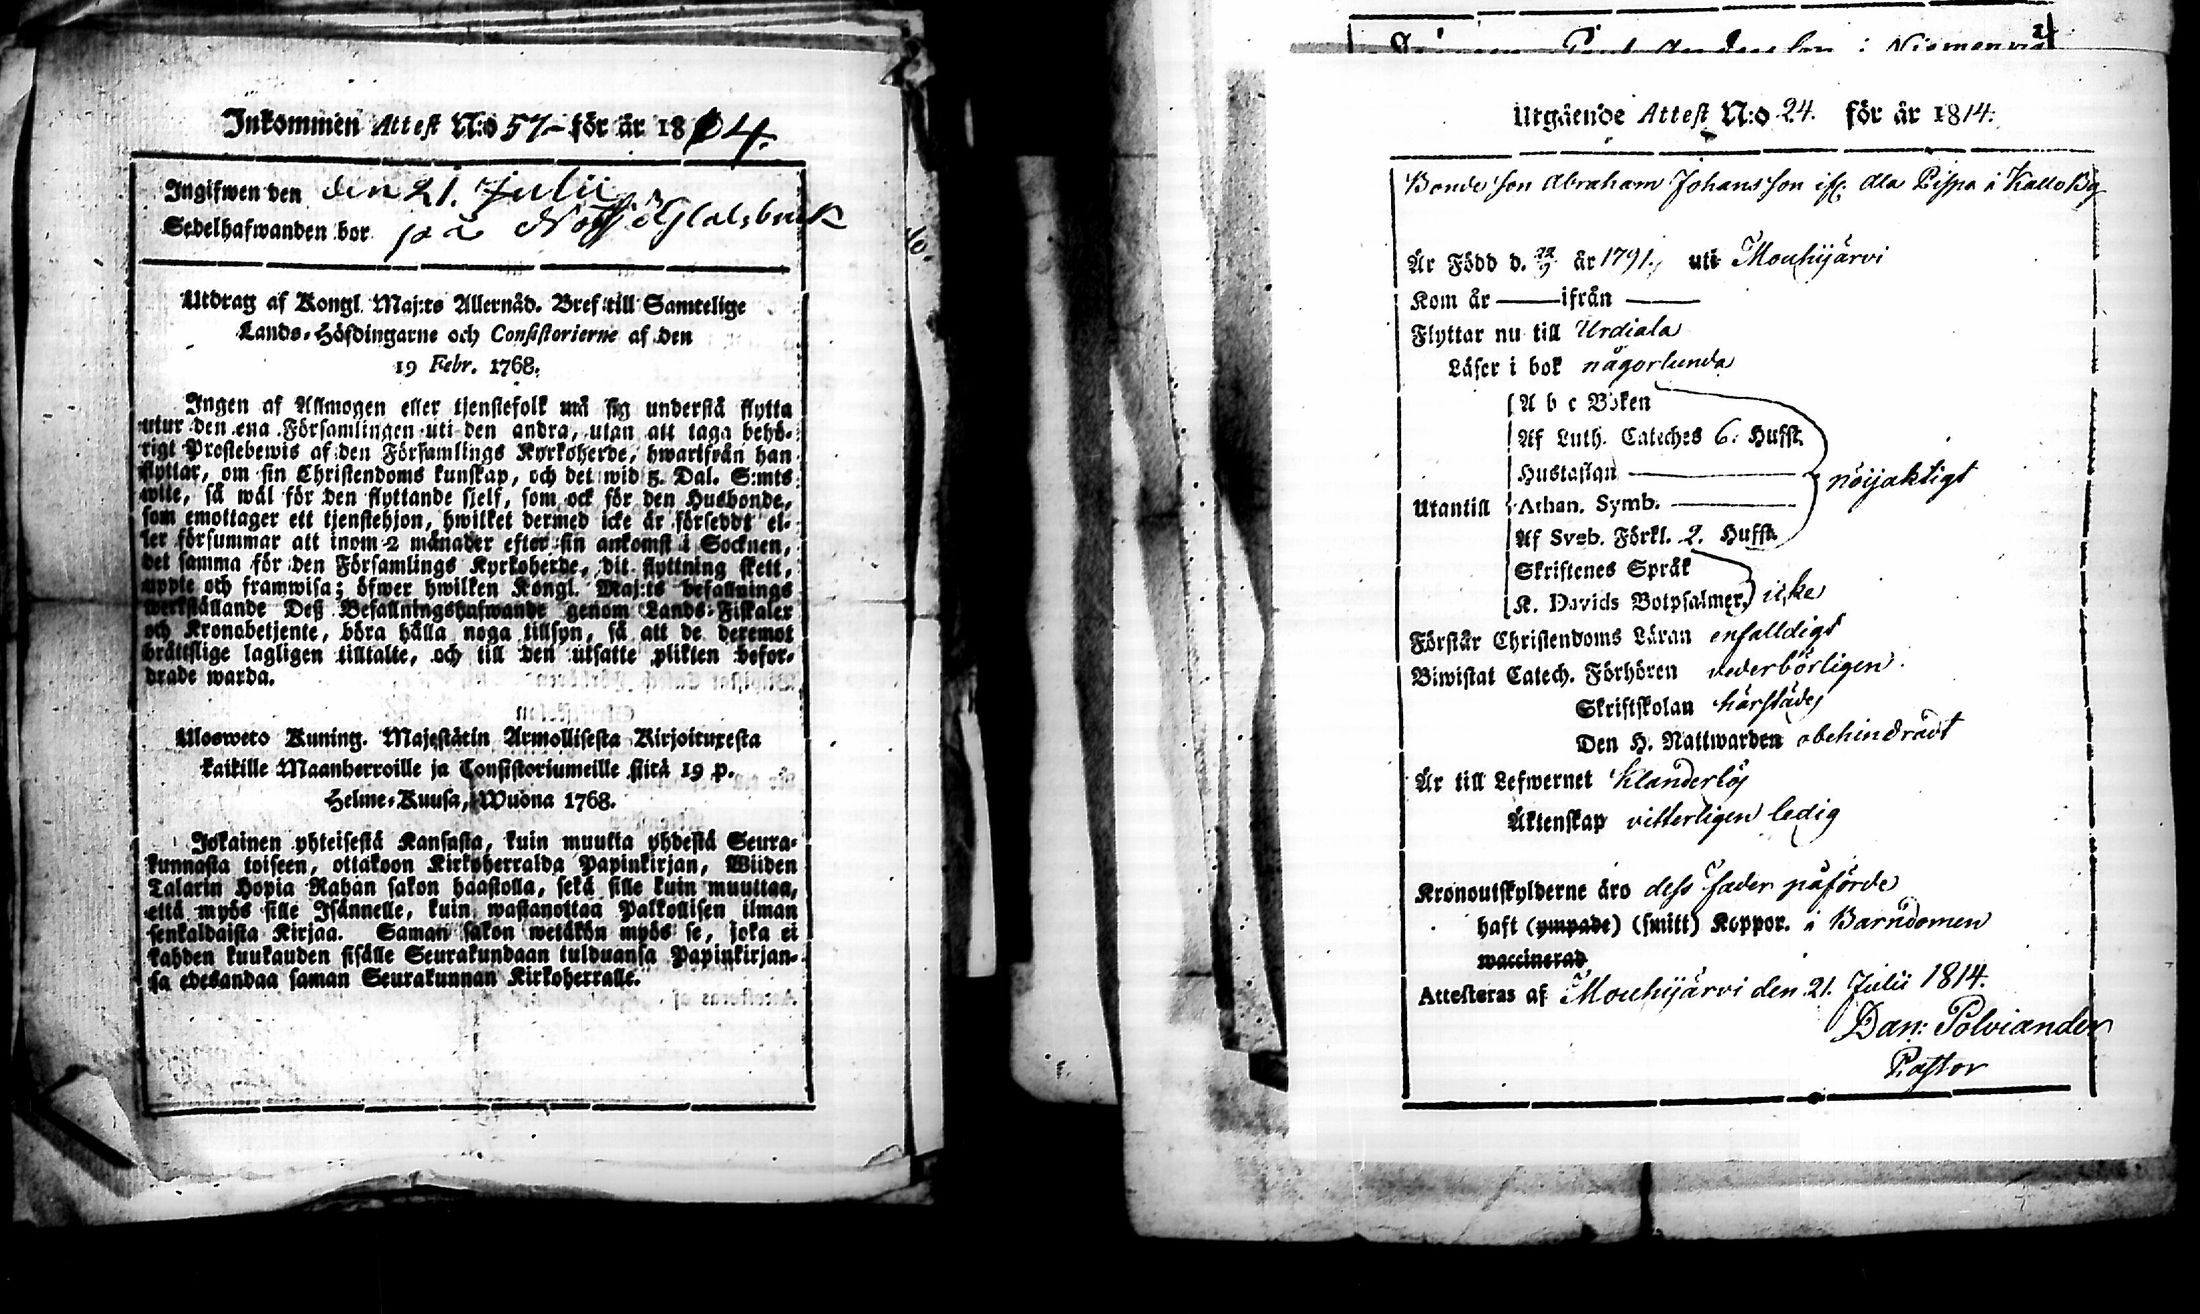 Inkommen Attest N:o 57 för år 1814.
Ingifwen den den 21. Julii
Sedelhafwanden bor på Glasbruk
Utdrag af Kongl. Maj:ts Allernåd. Bref till Samtelige
Lands-Höfdingarne och Consistorierne af den
19 Febr. 1768.
Ingen af Allmogen eller tjenstefolk må sig understå flytta
utur den ena Församlingen uti den andra, utan att taga behö-
rigt Prestebewis af den Församlings Kyrkoherde, hwarifrån han
flyttar, om sin Christendoms kunskap, och det wid 5. Dal. S:mts
wite, så wäl för den flyttande sjelf, som ock för den Husbonde,
som emottager ett tjenstehjon, hwilket dermed icke är försedt el-
ler försummar att inom 2 månader efter sin ankomst i Socknen,
det samma för den Församlings Kyrkoherde, dit flyttning skett,
uppte och framwisa; öfwer hwilken Kongl. Maj:ts befallnings
werkställande Deß Befallningshafwande genom Lands-Fiskaler
och Kronobetjente, böra hålla noga tillsyn, så att de deremot
brättslige lagligen tilltalte, och till den utsatte plikten befor-
drade warda.
Ulosweto Kuning. Majestätin Armollisesta Kirjoituxesta
kaikille Maanherroille ja Consistoriumeille siitä 19 p.
Helme-Kuusa, Wuona 1768.
Jokainen yhteisestä Kansasta, kuin muutta yhdestä Seura-
kunnasta toiseen, ottakoon Kirkoherralda Papinkirjan, Wiiden
Talarin Hopia Rahan sakon haastolla, sekä sille kuin muuttaa,
että myös sille Isännelle, kuin wastanottaa Palkollisen ilman
senkaldaista Kirjaa. Saman sakon wetäkön myös se, joka ei
kahden kuukauden sisälle Seurakundaan tulduansa Papinkirjan-
sa edesandaa saman Seurakunnan Kirkoherralle.
Utgående Attest N:o 24. för år 1814:
Bonde Son Abraham Johansson ifr. Ala Pispa i Kallo By
Är Född d. 22/9 år 1791., uti Mouhijärvi
Kom år — ifrån —
Flyttar nu till Urdiala
Läser i bok någorlunda
A b c Boken
Af Luth. Cateches 6: Hufst.
Hustaflan — nöijaktigt
Utantill Athan. Symb. —
Af Sveb. Förkl. 2. Hufst.
Skriftenes Språk
K. Davids Botpsalmer, icke
Förstår Christendoms Läran enfalldigt
Biwistat Catech. Förhören vederbörligen.
Skriftskolan härstädes
Den H. Nattwarden obehindradt
Är till Lefwernet Klanderlös
Äktenskap vitterligen ledig
Kronoutskylderne äro dess fader påförde
haft (ympade) (smitt) Koppor. i Barndomen
waccinerad
Attesteras af Mouhijärvi den 21. Julii 1814.
Dan: Polviander
Pastor